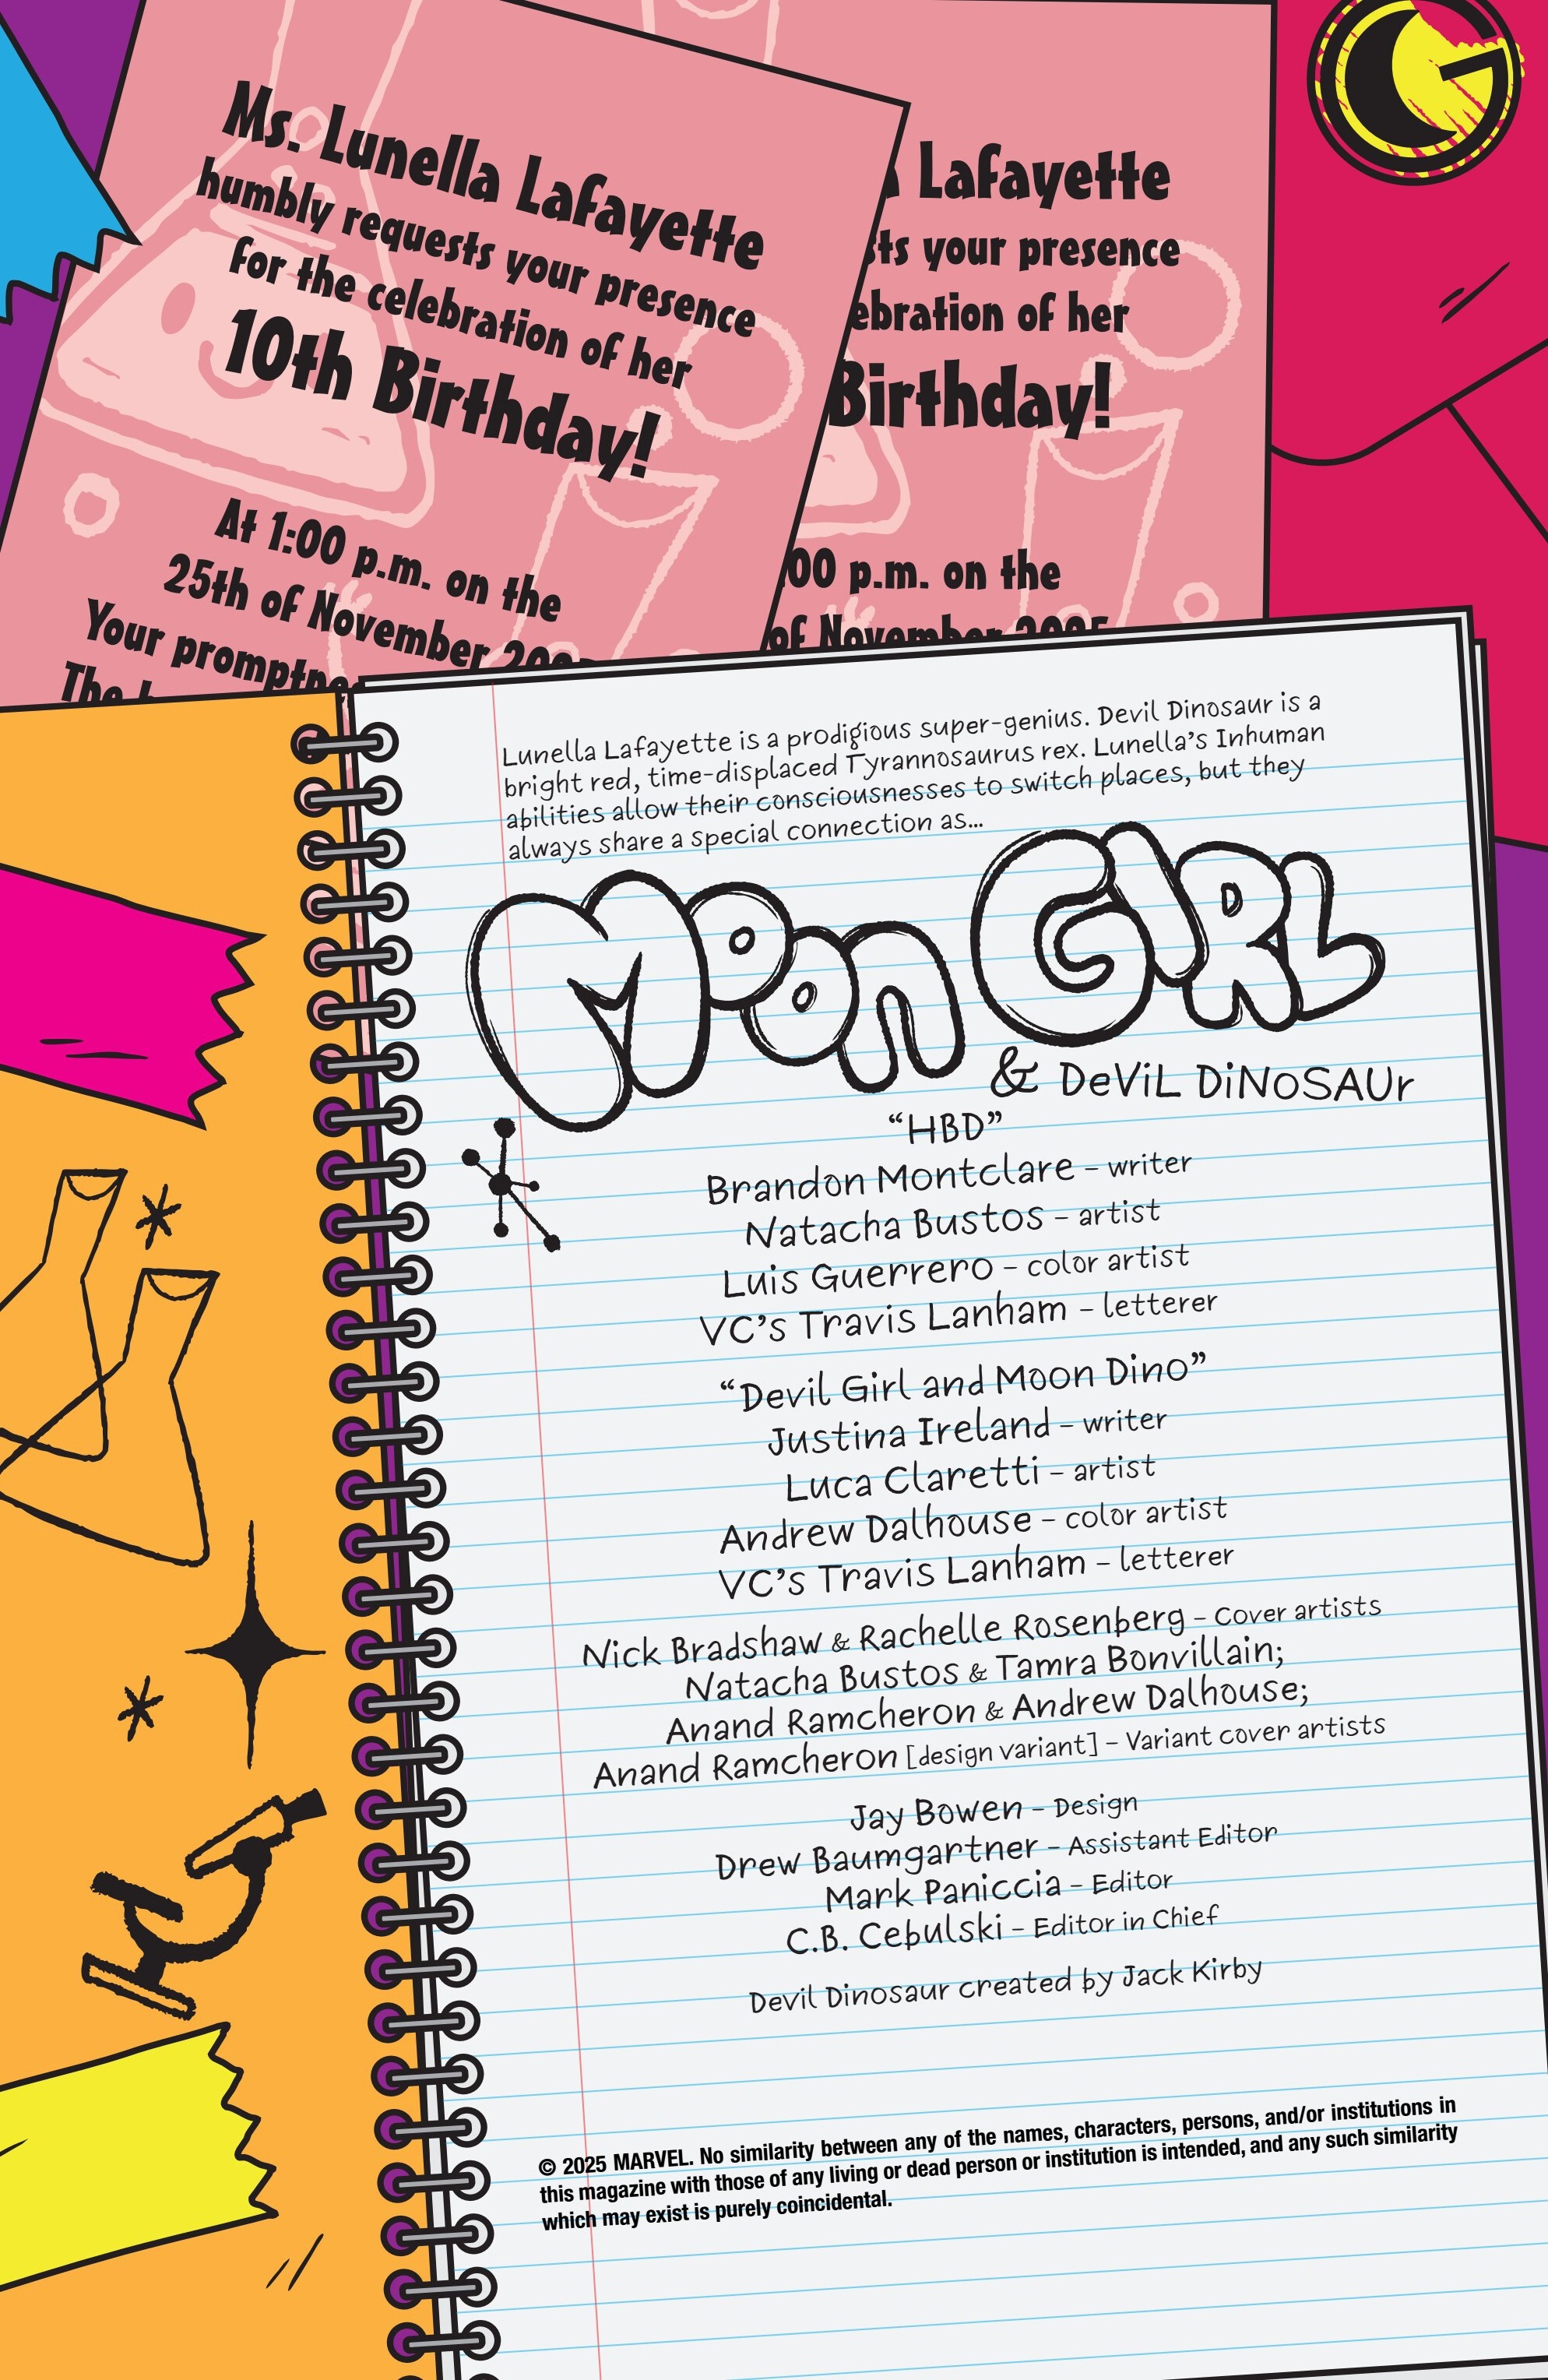 Ms. Lunella Lafayette
humbly requests your presence
for the celebration of her
10th Birthday!
At 1:00 p.m. on the
25th of November
Your
The
Lafayette
your presence
of her
Birthday!
00 p.m. on the
of November 2025
Lunella Lafayette is a prodigious super-genius. Devil Dinosaur is a
bright red, time-displaced Tyrannosaurus rex. Lunella's Inhuman
abilities allow their consciousnesses to switch places, but they
always share a special connection as...
MOON GIRL
& DEVIL DINOSAUR
“HBD”
Brandon Montclare – writer
Natacha Bustos – artist
Luis Guerrero – color artist
VC’s Travis Lanham – letterer
“Devil Girl and Moon Dino”
Justina Ireland – writer
Luca Claretti – artist
Andrew Dalhouse – color artist
VC’s Travis Lanham – letterer
Nick Bradshaw & Rachelle Rosenberg – Cover artists
Natacha Bustos & Tamra Bonvillain;
Anand Ramcheron & Andrew Dalhouse;
Anand Ramcheron [design variant] – Variant cover artists
Jay Bowen – Design
Drew Baumgartner – Assistant Editor
Mark Paniccia – Editor
C.B. Cebulski – Editor in Chief
Devil Dinosaur created by Jack Kirby
© 2025 MARVEL. No similarity between any of the names, characters, persons, and/or institutions in
this magazine with those of any living or dead person or institution is intended, and any such similarity
which may exist is purely coincidental.